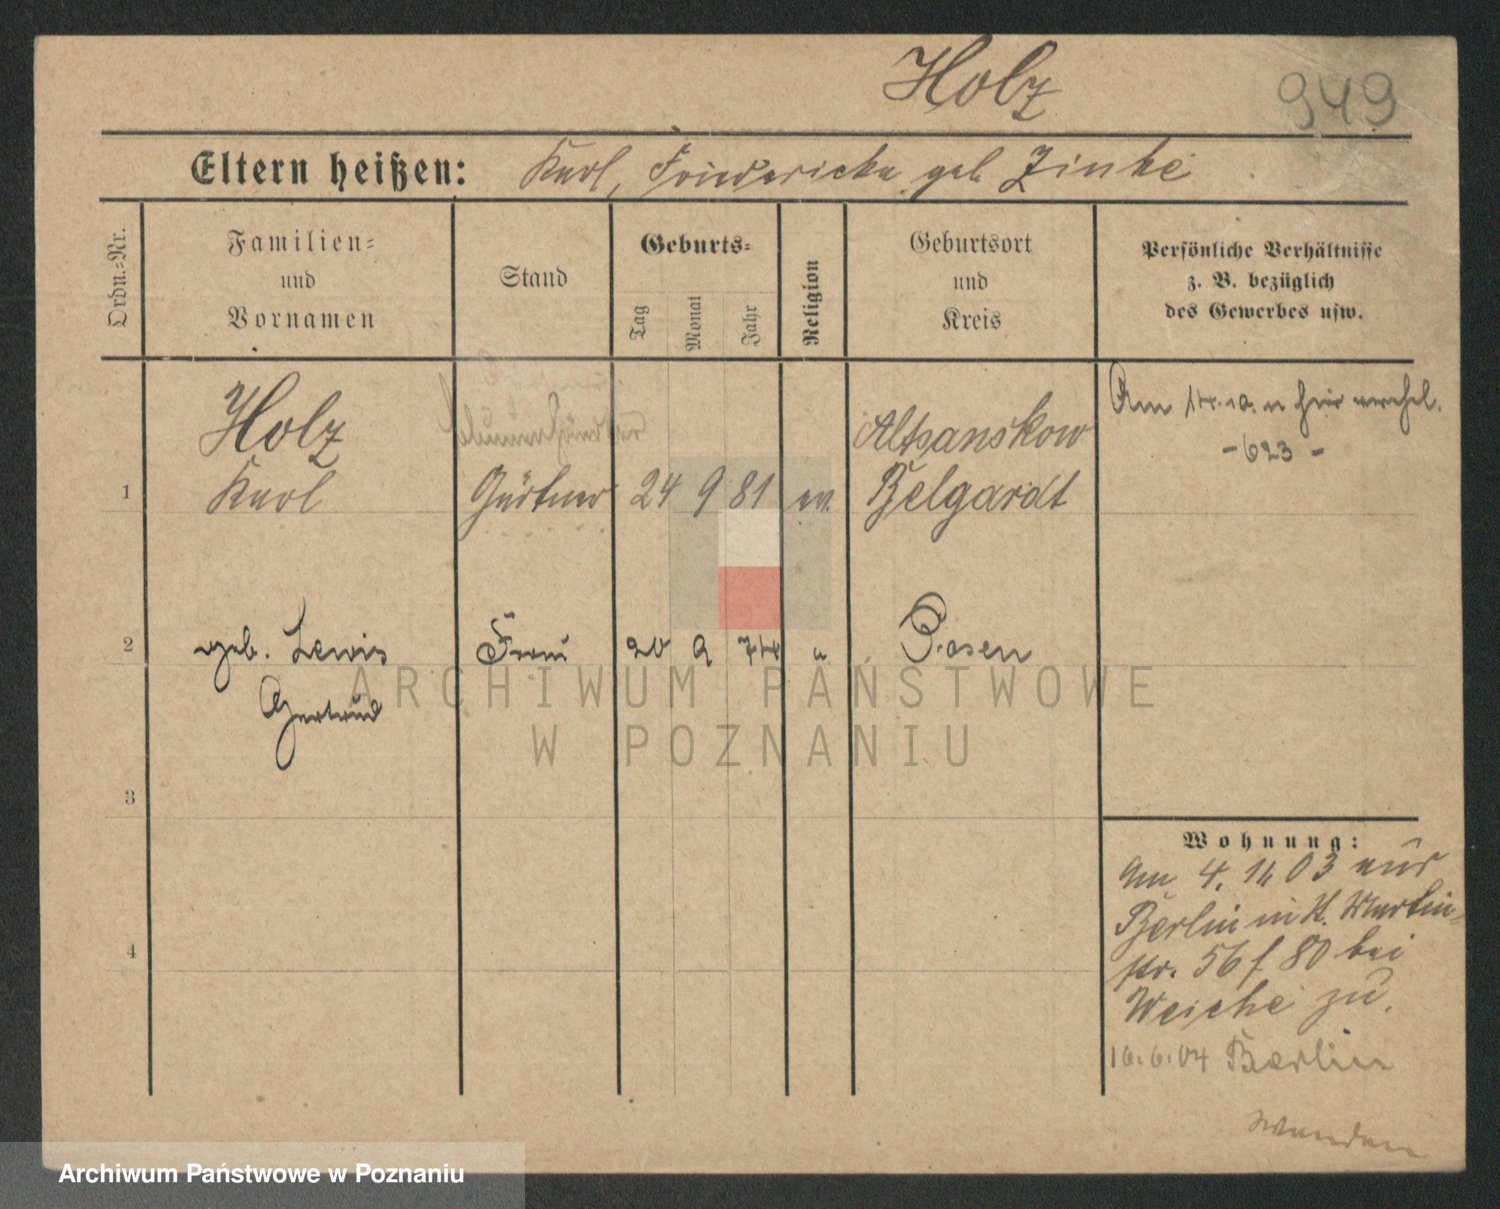 Holz
949
Eltern heißen: Karl, Friedericke geb. Zinke
Ordn.=Nr.
Familien=
und
Vornamen
Stand
Geburts=
Tag
Monat
Jahr
Religion
Geburtsort
und
Kreis
Persönliche Verhältnisse
z. B. bezüglich
des Gewerbes usw.
Holz
Altsanskow
Am 14. 10. hier verehel.
-623-
1 Karl Gärtner 24 9 81 ev. Belgardt
2 geb. Lewis Frau 20 9 74 " Posen
Gertrud
ARCHIWUM PAŃSTWOWE
W POZNANIU
3
4
Wohnung:
Am 4. 11 03 aus
Berlin n St. Martin-
str. 56 f 80 bei
Weiche zu.
16.6.04 Berlin
Archiwum Państwowe w Poznaniu